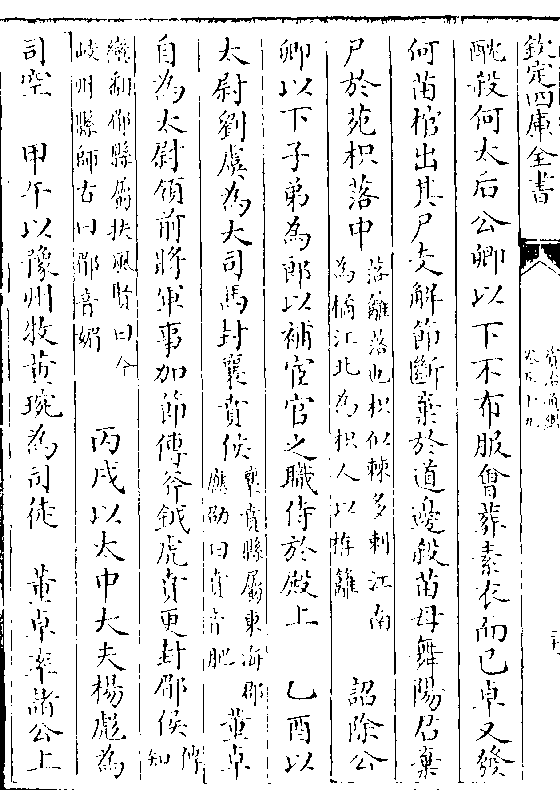 欽定四庫全書
資治通鑑
卷五十九
酖殺何太后公卿以下不布服會葬素衣而已卓又發
何苗棺出其尸支解節斷棄於道邊殺苗母舞陽君棄
尸於苑枳落中
落離落也枳似棘多刺江南
為橘江北為枳人以捍離
詔除公
卿以下子弟為郎以補宦官之職侍於殿上　乙酉以
太尉劉虞為大司馬封襄賁侯
襄賁縣屬東海郡
應劭曰賁音肥
董卓
自為太尉領前將軍事加節傳斧鉞虎賁更封郿侯
傳
知
戀翻郿縣屬扶風賢曰今
岐州縣師古曰郿音媚
丙戌以太中大夫楊彪為
司空　甲午以豫州牧黄琬為司徒　董卓率諸公上